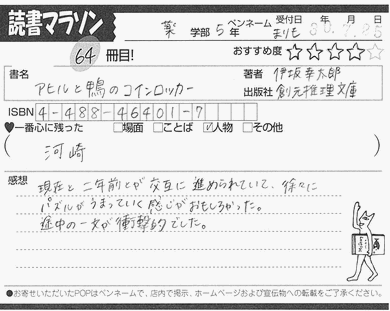 読書マラソン
薬 学部 5 年 ペンネーム まりも 受付日 30.7.25 年 月 日
64 冊目! おすすめ度 ☆☆☆☆☆
書名 アヒルと鴨のコインロッカー
著者 伊坂幸太郎
出版社 創元推理文庫
ISBN 4-488-46401-7
♥一番心に残った □場面 □ことば ☑人物 □その他
( 河崎 )
感想
現在と二年前とが交互に進められていて、徐々に
パズルがうまっていく感じがおもしろかった。
途中の一文が衝撃的でした。
●お寄せいただいたPOPはペンネームで、店内で掲示、ホームページおよび宣伝物への転載をご了承ください。